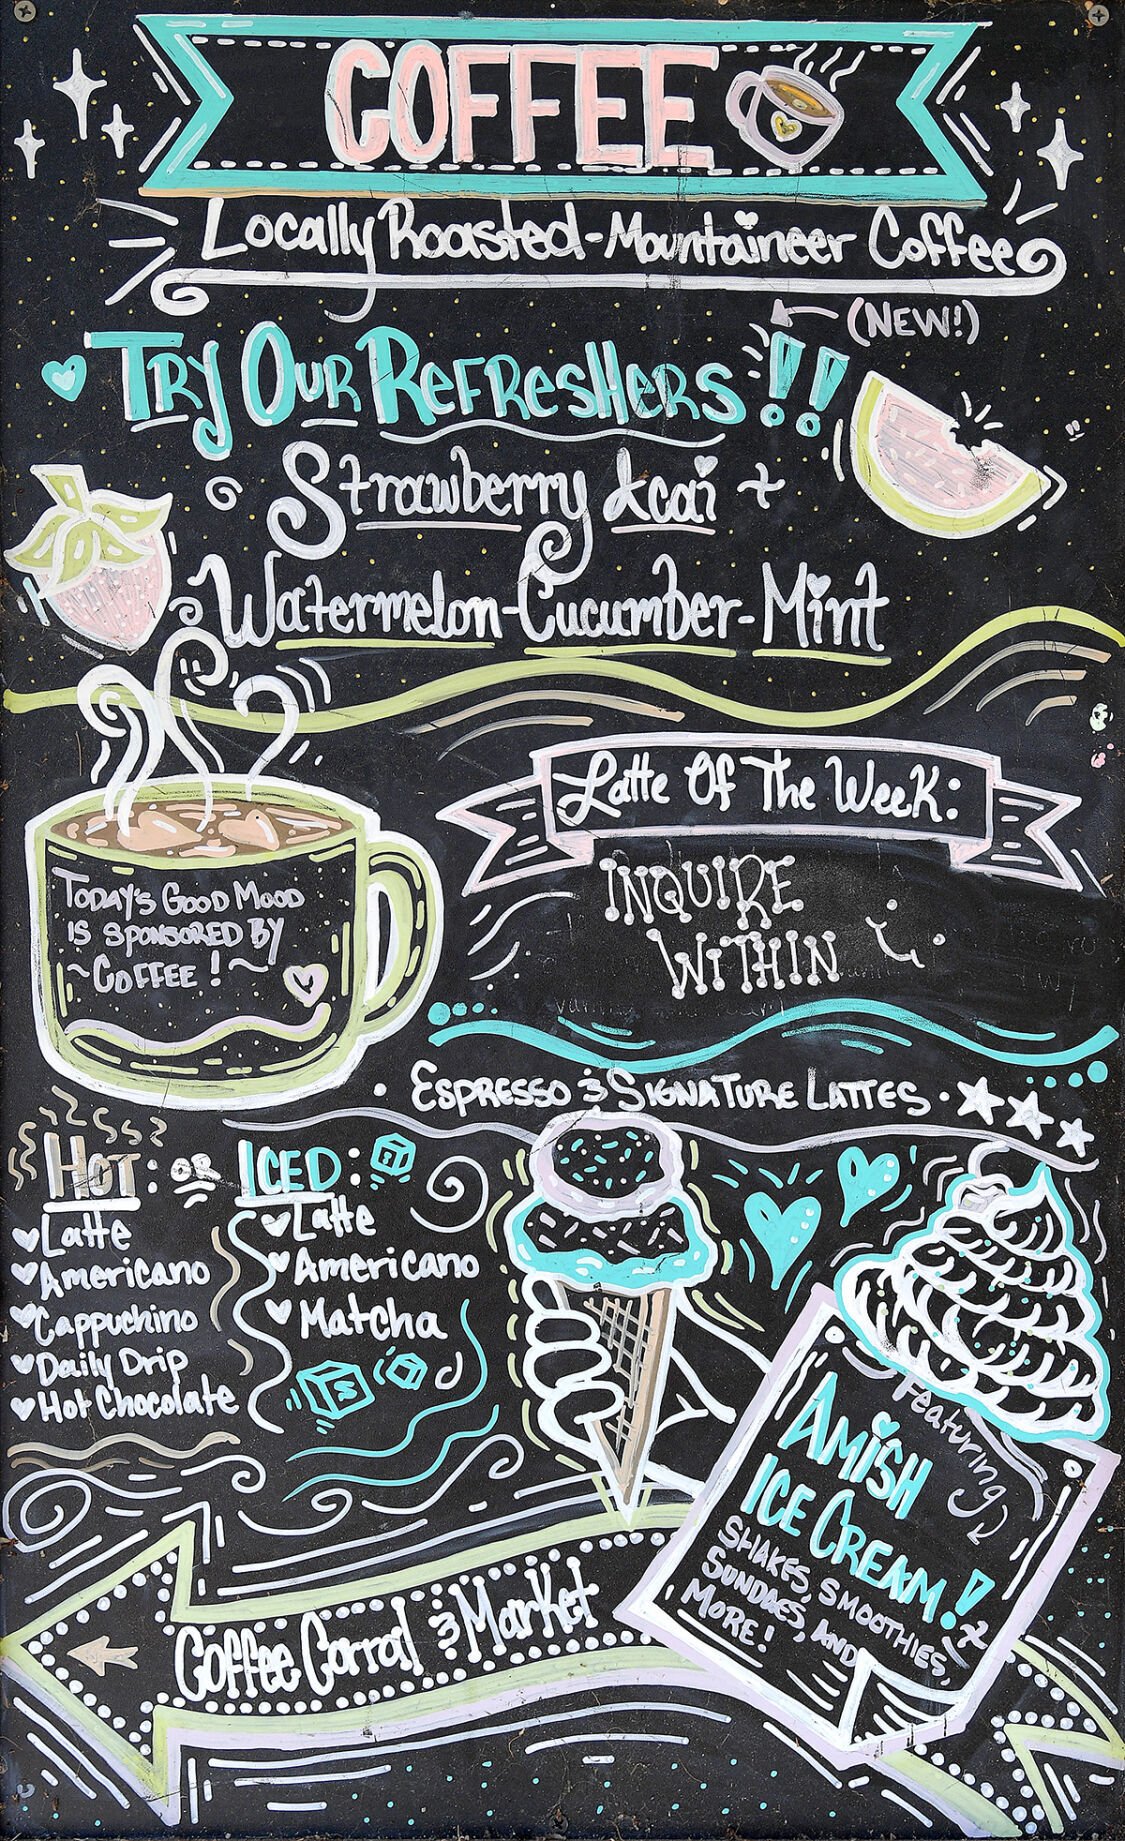 COFFEE
Locally Roasted-Mountaineer Coffee
(NEW!)
TRY OUR REFRESHERS!!
Strawberry Acai +
Watermelon-Cucumber-Mint
Latte Of The Week:
INQUIRE
WITHIN
TODAY'S GOOD MOOD
IS SPONSORED BY
~COFFEE!~
ESPRESSO & SIGNATURE LATTES
HOT: OR ICED:
Latte
Americano
Cappuchino
Daily Drip
Hot Chocolate
Latte
Americano
Matcha
Featuring
AMISH
ICE CREAM!
SHAKES, SMOOTHIES, +
SUNDAES, AND
MORE!
Coffee Corral & Market